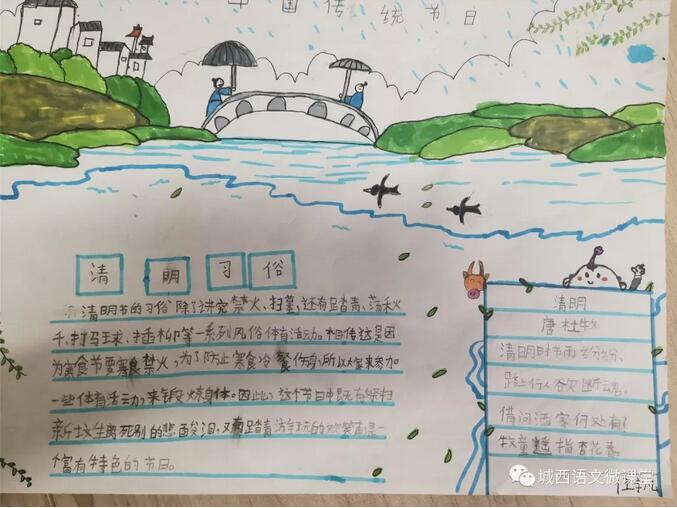 中国传统节日
清明习俗
清明节的习俗除了讲究禁火、扫墓,还有踏青、荡秋
千、打马球、插柳等一系列风俗体育活动。相传这是因
为寒食节要寒食禁火,为了防止寒食冷餐伤身,所以大家来参加
一些体育活动,来锻炼身体。因此,这个节日中既有祭扫
新坟生离死别的悲酸泪,又有踏青游玩的欢笑声,是一
个富有特色的节日。
清明
唐 杜牧
清明时节雨纷纷、
路上行人欲断魂。
借问酒家何处有?
牧童遥指杏花春。
城西语文微课堂